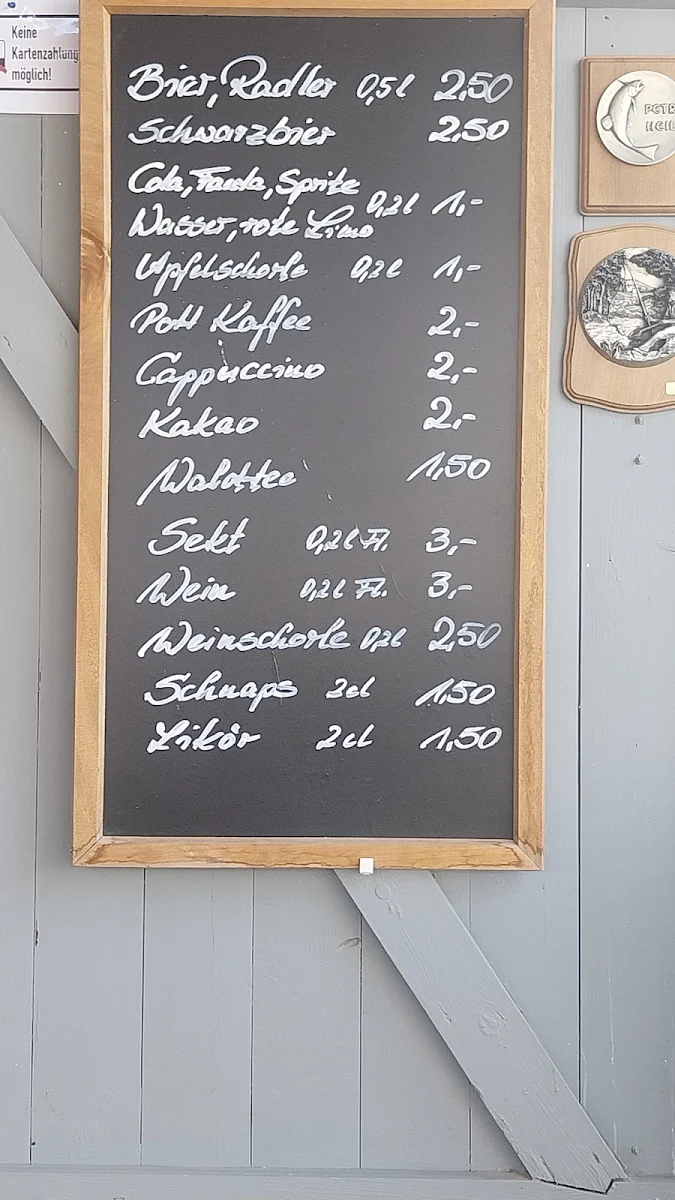 Keine
Kartenzahlung
möglich!
Bier, Radler 0,5l 2,50
Schwarzbier 2,50
Cola, Fanta, Sprite
Wasser, rote Limo 0,2l 1,-
Apfelschorle 0,2l 1,-
Pott Kaffee 2,-
Cappuccino 2,-
Kakao 2,-
Waldttee 1,50
Sekt 0,2l Fl. 3,-
Wein 0,2l Fl. 3,-
Weinschorle 0,2l 2,50
Schnaps 2cl 1,50
Likör 2cl 1,50
PETR
HEIL